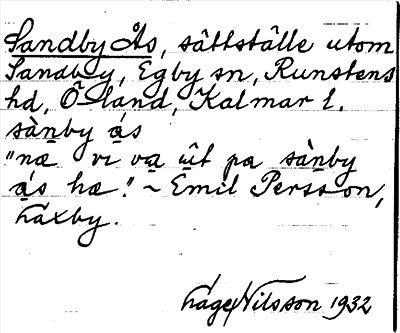 Sandby Ås, sättställe utom
Sandby, Egby sn, Runstens
hd, Öland, Kalmar l.
sànby ás
"næ vi va ut pa sànby
ás hæ." ~ Emil Persson,
Laxby.
Åge Nilsson 1932